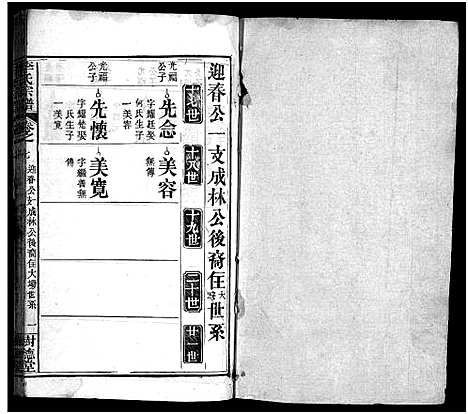 迎春公一支成林公後裔住大塆世系
十七世
十八世
十九世
二十世
廿一世
光福公子
先念
字耀廷娶何氏生子一美容
美容
無傳
光福公子
先懷
字耀楚娶氏生子一美寬
美寬
字繼善無傳
李氏宗譜
卷之七
迎春公支成林公後裔住大塆世系
一
樹德堂